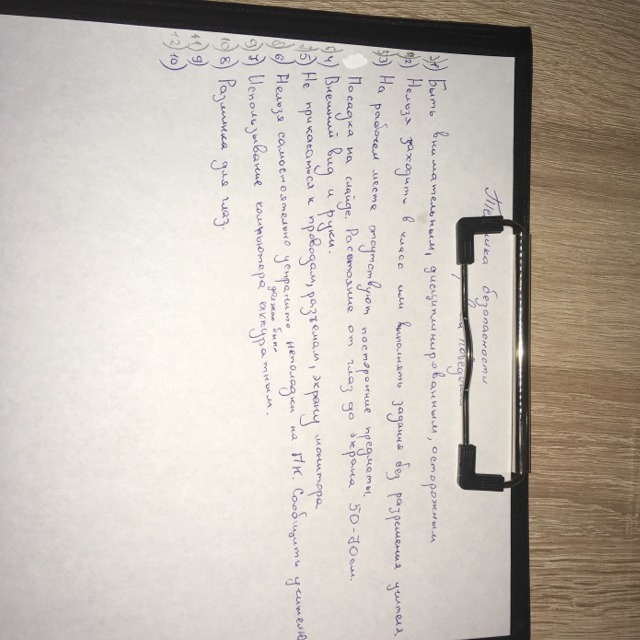 Техника безопасности
на
1) Быть внимательным, дисциплинированным, осторожным
2) Нельзя заходить в класс или выполнять задания без разрешения учителя.
3) На рабочем месте отсутствуют посторонние предметы.
Посадка на слайде. Расстояние от глаз до экрана 50-70 см.
4) Внешний вид и руки.
5) Не прикасаться к проводам, разъемам, экрану монитора
6) Нельзя самостоятельно устранить неполадки на ПК. Сообщить учителю
должно быть
7) Использование компьютера аккуратным.
8) Разминка для глаз.
9)
10)